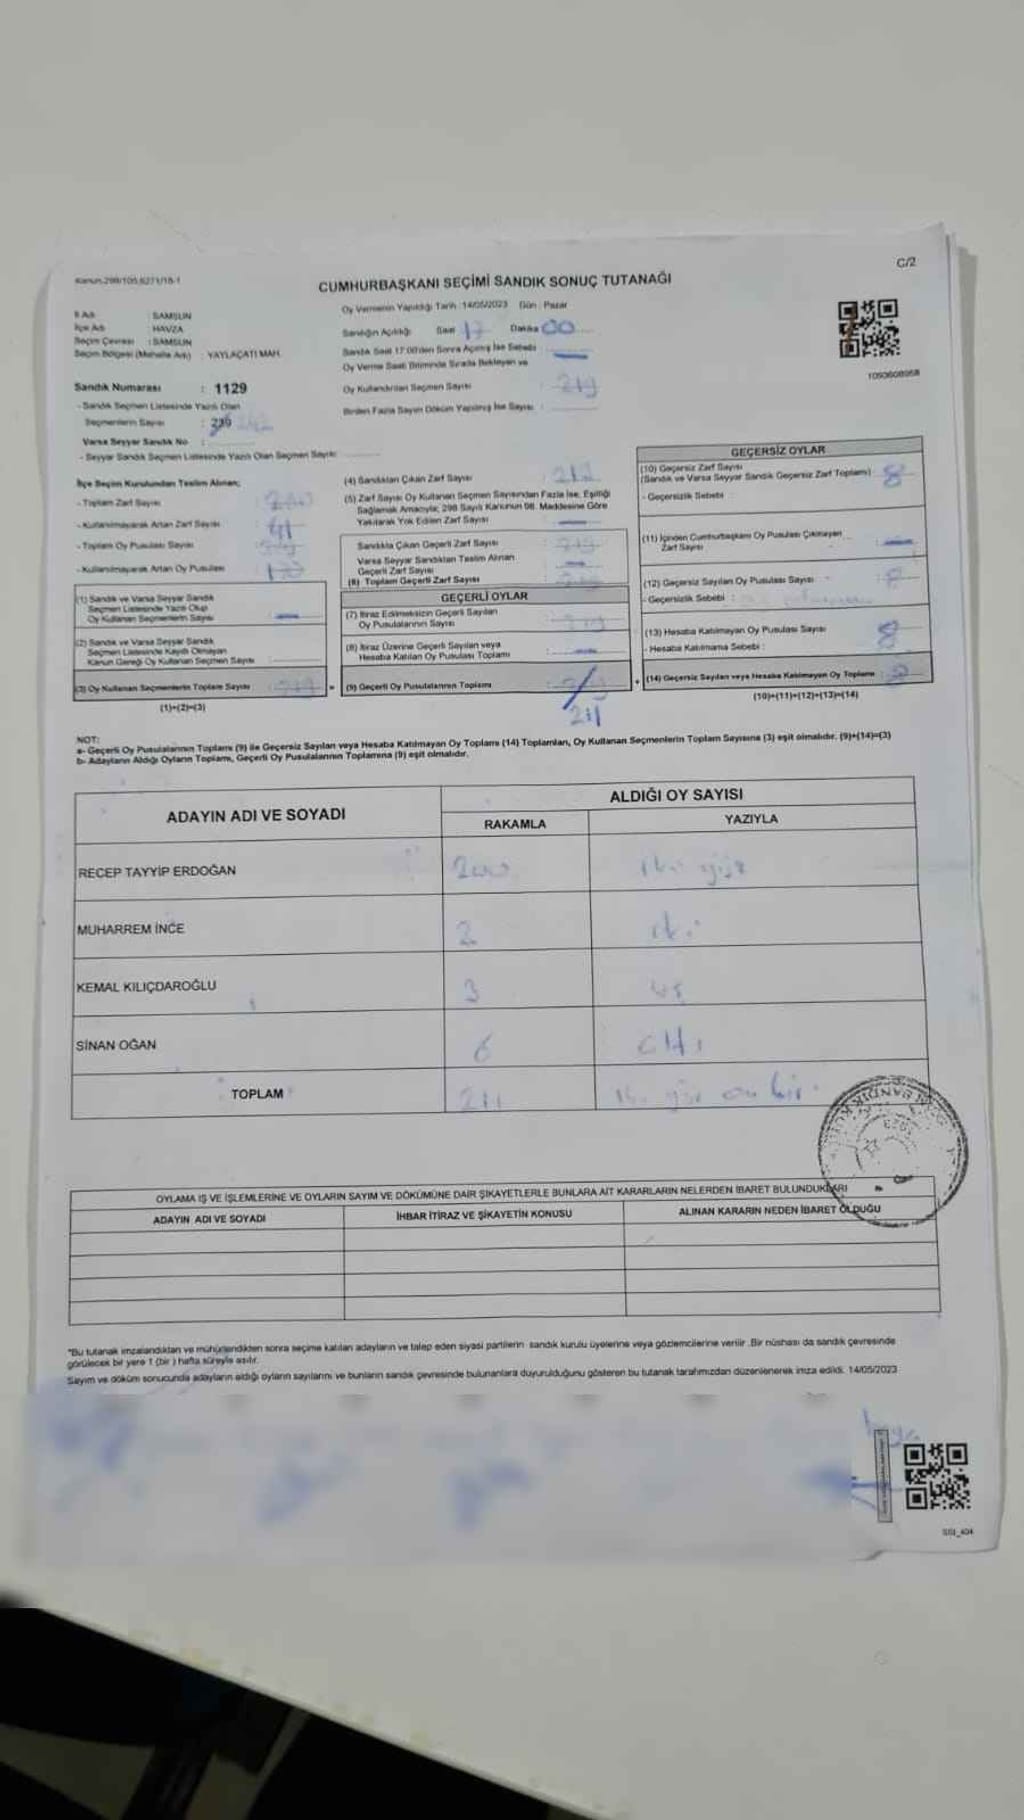 Kanun:298/105,6271/18-1
C/2
CUMHURBAŞKANI SEÇİMİ SANDIK SONUÇ TUTANAĞI
İl Adı : SAMSUN
İlçe Adı : HAVZA
Seçim Çevresi : SAMSUN
Seçim Bölgesi (Mahalle Adı) : YAYLAÇATI MAH.
Sandık Numarası : 1129
- Sandık Seçmen Listesinde Yazılı Olan
Seçmenlerin Sayısı : 239
Varsa Seyyar Sandık No :
- Seyyar Sandık Seçmen Listesinde Yazılı Olan Seçmen Sayısı
Oy Vermenin Yapıldığı Tarih :14/05/2023 Gün : Pazar
Sandığın Açıldığı Saat 17 Dakika 00
Sandık Saat 17:00'den Sonra Açılmış İse Sebebi
Oy Verme Saati Bitiminde Sırada Bekleyen ve
Oy Kullandırılan Seçmen Sayısı : 219
Birden Fazla Sayım Döküm Yapılmış İse Sayısı :
1093608958
İlçe Seçim Kurulundan Teslim Alınan;
- Toplam Zarf Sayısı
- Kullanılmayarak Artan Zarf Sayısı 41
- Toplam Oy Pusulası Sayısı
- Kullanılmayarak Artan Oy Pusulası
(1) Sandık ve Varsa Seyyar Sandık
Seçmen Listesinde Yazılı Olup
Oy Kullanan Seçmenlerin Sayısı : —
(2) Sandık ve Varsa Seyyar Sandık
Seçmen Listesinde Kayıtlı Olmayan
Kanun Gereği Oy Kullanan Seçmen Sayısı
(3) Oy Kullanan Seçmenlerin Toplam Sayısı : 219
(1)+(2)=(3)
(4) Sandıktan Çıkan Zarf Sayısı
(5) Zarf Sayısı Oy Kullanan Seçmen Sayısından Fazla İse, Eşitliği
Sağlamak Amacıyla; 298 Sayılı Kanunun 98. Maddesine Göre
Yakılarak Yok Edilen Zarf Sayısı —
Sandıkta Çıkan Geçerli Zarf Sayısı : 219
Varsa Seyyar Sandıktan Teslim Alınan
Geçerli Zarf Sayısı : —
(6) Toplam Geçerli Zarf Sayısı
GEÇERLİ OYLAR
(7) İtiraz Edilmeksizin Geçerli Sayılan
Oy Pusulalarının Sayısı : 219
(8) İtiraz Üzerine Geçerli Sayılan veya
Hesaba Katılan Oy Pusulası Toplamı : —
(9) Geçerli Oy Pusulalarının Toplamı : 219
211
GEÇERSİZ OYLAR
(10) Geçersiz Zarf Sayısı
(Sandık ve Varsa Seyyar Sandık Geçersiz Zarf Toplamı) : 8
- Geçersizlik Sebebi :
(11) İçinden Cumhurbaşkanı Oy Pusulası Çıkmayan
Zarf Sayısı : —
(12) Geçersiz Sayılan Oy Pusulası Sayısı : 8
- Geçersizlik Sebebi :
(13) Hesaba Katılmayan Oy Pusulası Sayısı : 8
- Hesaba Katılmama Sebebi :
(14) Geçersiz Sayılan veya Hesaba Katılmayan Oy Toplamı : 8
(10)+(11)+(12)+(13)=(14)
NOT:
a- Geçerli Oy Pusulalarının Toplamı (9) ile Geçersiz Sayılan veya Hesaba Katılmayan Oy Toplamı (14) Toplamları, Oy Kullanan Seçmenlerin Toplam Sayısına (3) eşit olmalıdır. (9)+(14)=(3)
b- Adayların Aldığı Oyların Toplamı, Geçerli Oy Pusulalarının Toplamına (9) eşit olmalıdır.
ADAYIN ADI VE SOYADI
ALDIĞI OY SAYISI
RAKAMLA YAZIYLA
RECEP TAYYİP ERDOĞAN 200 iki yüz
MUHARREM İNCE 2 iki
KEMAL KILIÇDAROĞLU 3 üç
SİNAN OĞAN 6 altı
TOPLAM 211 iki yüz on bir
OYLAMA İŞ VE İŞLEMLERİNE VE OYLARIN SAYIM VE DÖKÜMÜNE DAİR ŞİKAYETLERLE BUNLARA AİT KARARLARIN NELERDEN İBARET BULUNDUKLARI
ADAYIN ADI VE SOYADI İHBAR İTİRAZ VE ŞİKAYETİN KONUSU ALINAN KARARIN NEDEN İBARET OLDUĞU
*Bu tutanak imzalandıktan ve mühürlendikten sonra seçime katılan adayların ve talep eden siyasi partilerin sandık kurulu üyelerine veya gözlemcilerine verilir .Bir nüshası da sandık çevresinde
görülecek bir yere 1 (bir ) hafta süreyle asılır.
Sayım ve döküm sonucunda adayların aldığı oyların sayılarını ve bunların sandık çevresinde bulunanlara duyurulduğunu gösteren bu tutanak tarafımızdan düzenlenerek imza edildi. 14/05/2023